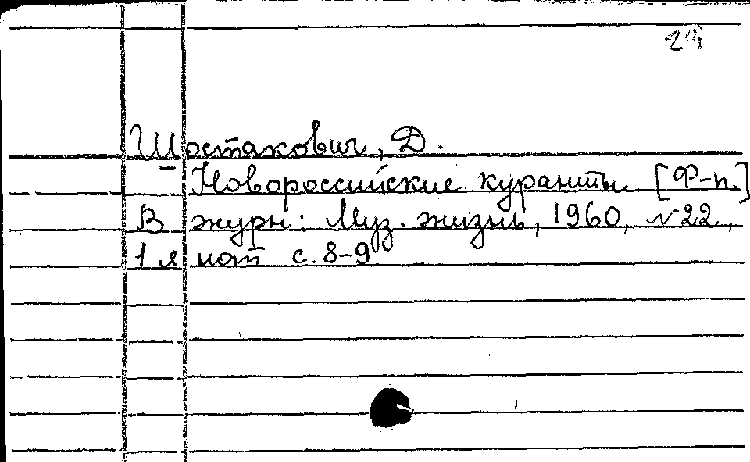 Шостакович, Д.
Новороссийские куранты [Ф-п.]
В журн: Муз. жизнь, 1960, №22,
1 я нот с. 8-9